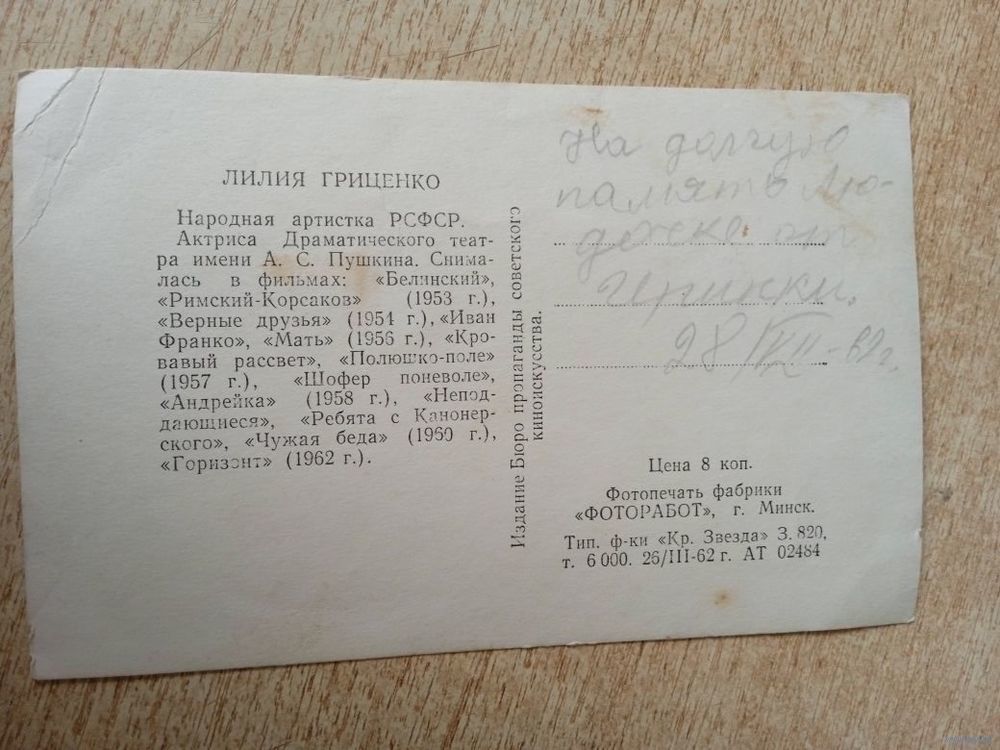 ЛИЛИЯ ГРИЦЕНКО
Народная артистка РСФСР.
Актриса Драматического теат-
ра имени А. С. Пушкина. Снима-
лась в фильмах: «Белинский»,
«Римский-Корсаков» (1953 г.),
«Верные друзья» (1954 г.), «Иван
Франко», «Мать» (1956 г.), «Кро-
вавый рассвет», «Полюшко-поле»
(1957 г.), «Шофер поневоле»,
«Андрейка» (1958 г.), «Непод-
дающиеся», «Ребята с Канонер-
ского», «Чужая беда» (1960 г.),
«Горизонт» (1962 г.).
Издание Бюро пропаганды советского
киноискусства.
На долгую
память Лю-
дочке от
Иринки.
28/VII-62 г.
Цена 8 коп.
Фотопечать фабрики
«ФОТОРАБОТ», г. Минск.
Тип. ф-ки «Кр. Звезда» З. 820,
т. 6 000. 26/III-62 г. АТ 02484